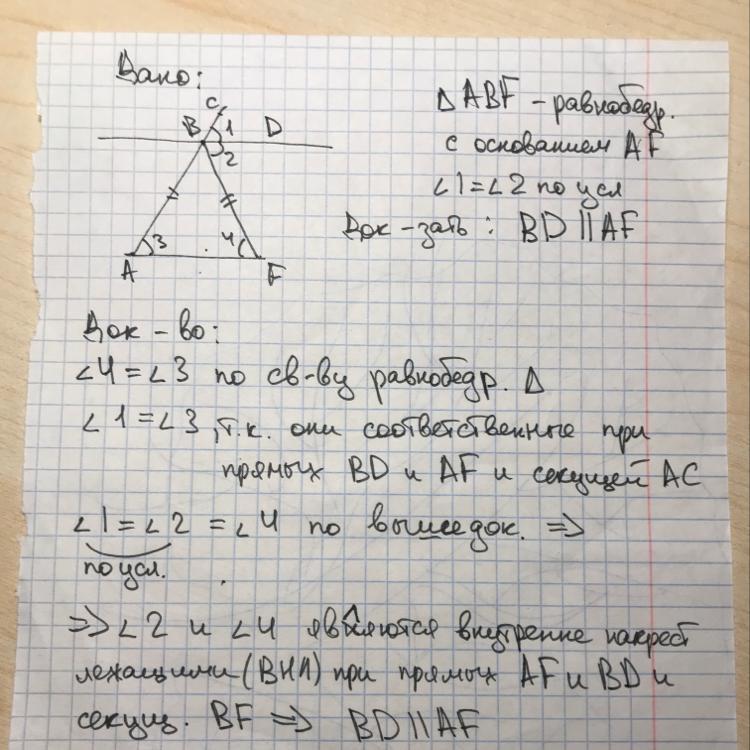 Дано:
C
B 1 D
2
3 4
A F
Δ ABF - равнобедр.
с основанием AF
∠1=∠2 по усл
Док-зать: BD || AF
Док-во:
∠4=∠3 по св-ву равнобедр. Δ
∠1=∠3, т.к. они соответственные при
прямых BD и AF и секущей AC
∠1=∠2=∠4 по вышедок. =>
по усл.
=> ∠2 и ∠4 являются внутренне накрест
лежащими (ВНЛ) при прямых AF и BD и
секущ. BF => BD || AF